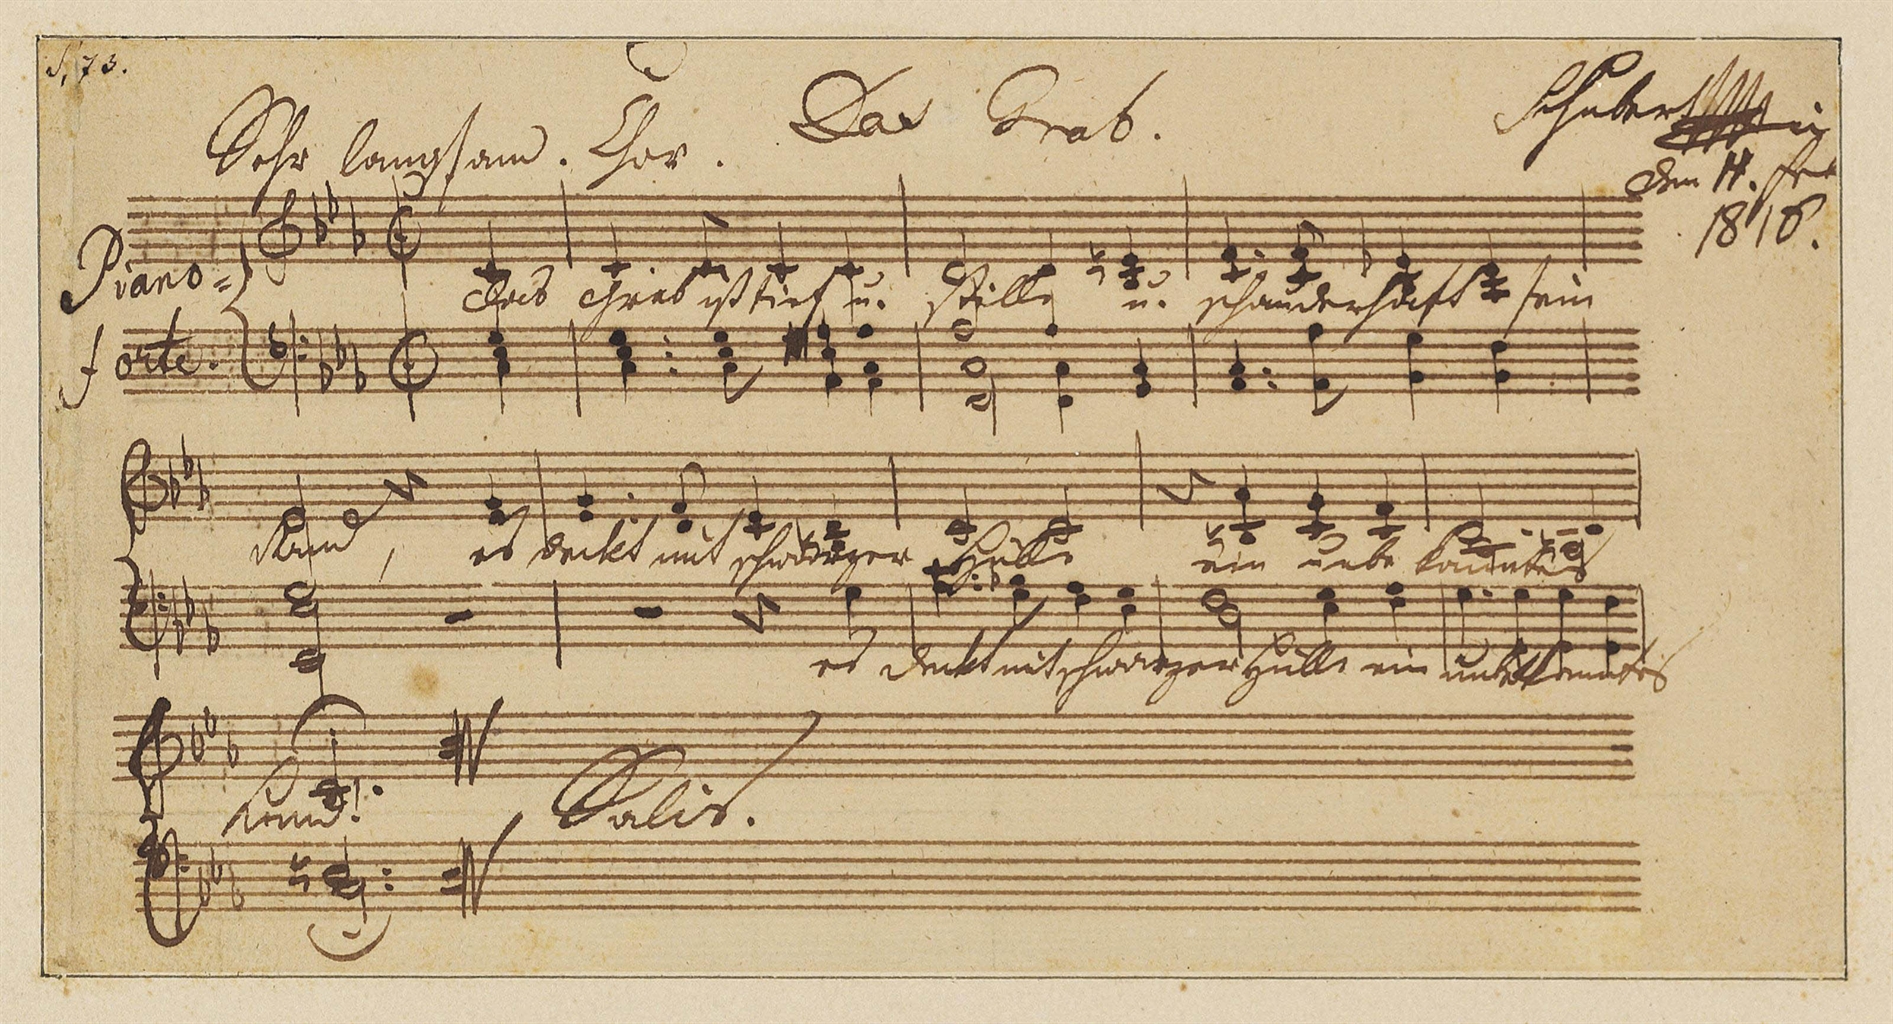 S. 73.
Das Grab.
Sehr langsam. Chor.
Schubert
den 11. Feb
1816.
Piano=
forte.
Das Grab ist tief u. stille u. schauderhaft sein
Rand, es deckt mit schwarzer Hülle ein unbekanntes
es deckt mit schwarzer Hülle ein unbekanntes
Land!
Salis.